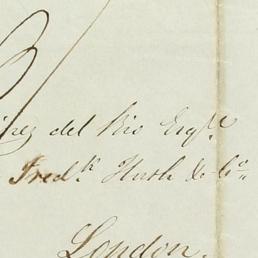 del Rio Esqre.
Fredk. Huth & Co.
London.